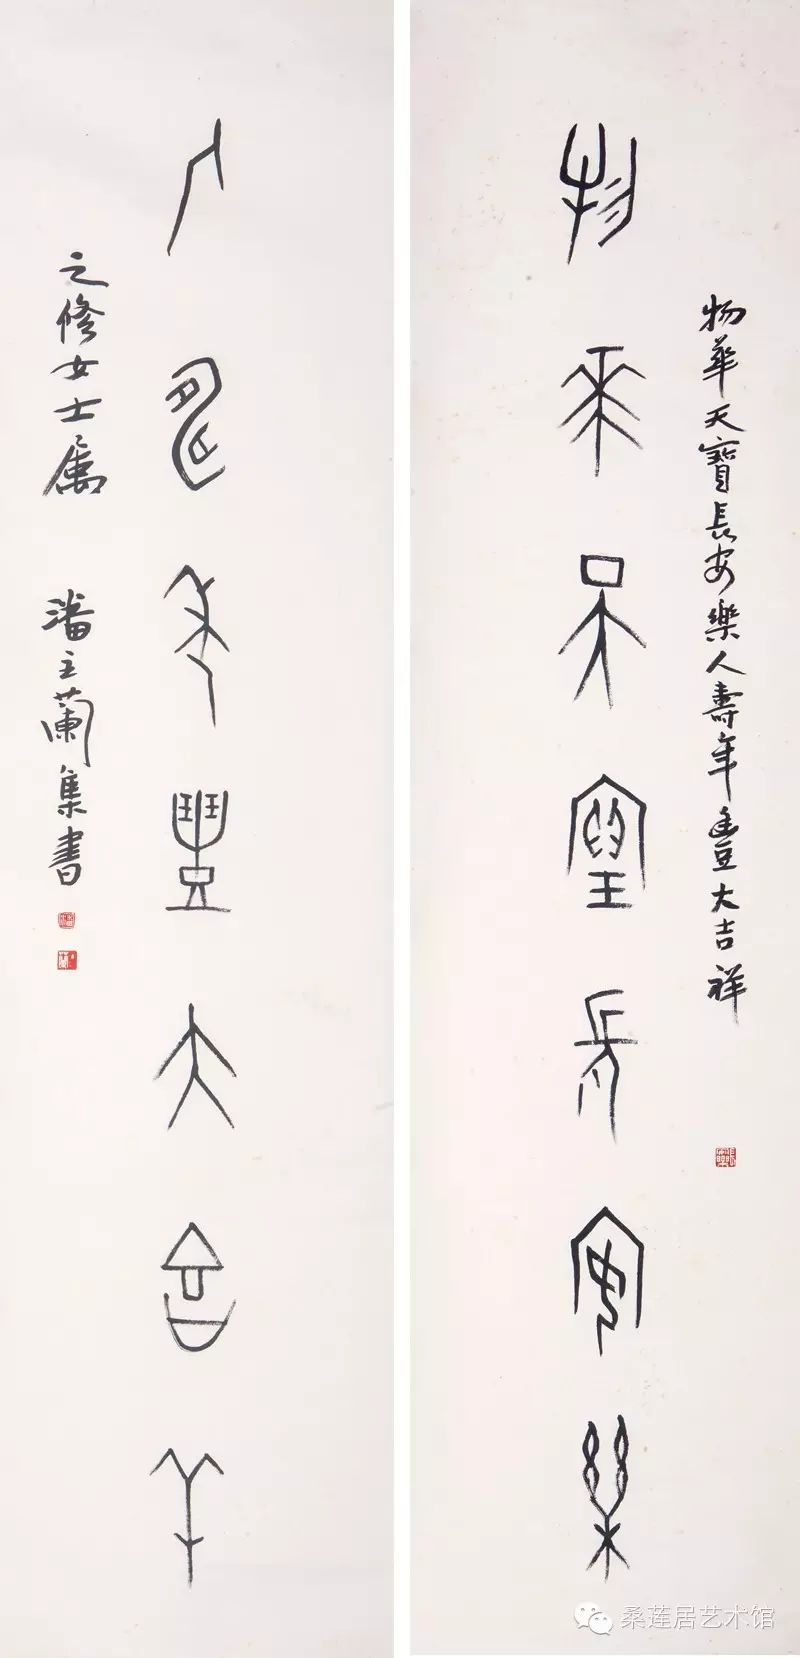 物華天寶長安樂
物華天寶長安樂人壽年豐大吉祥
人壽年豐大吉羊
之修女士属
潘主蘭集書
桑莲居艺术馆